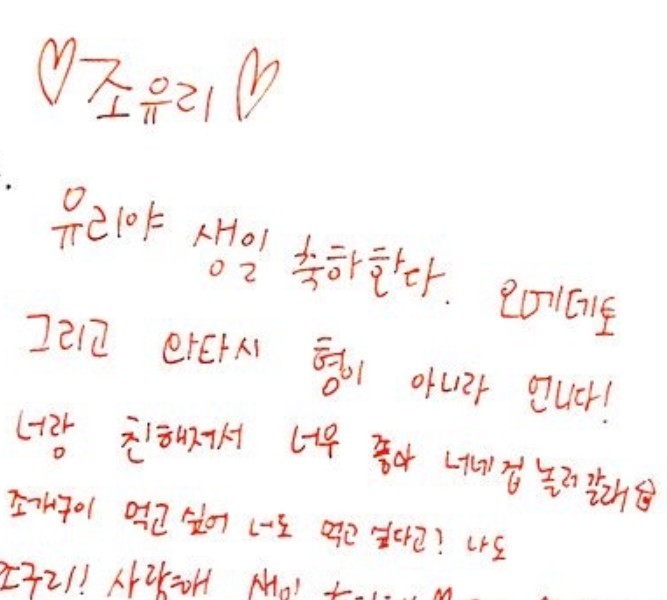 ♡조유리♡
유리야 생일 축하한다. 오메데토
그리고 안타시 형이 아니라 언니다!
너랑 친해져서 너무 좋아 너네 집 놀러갈래
조개구이 먹고 싶어 너도 먹고 싶다고? 나도
조구리!! 사랑해 생일